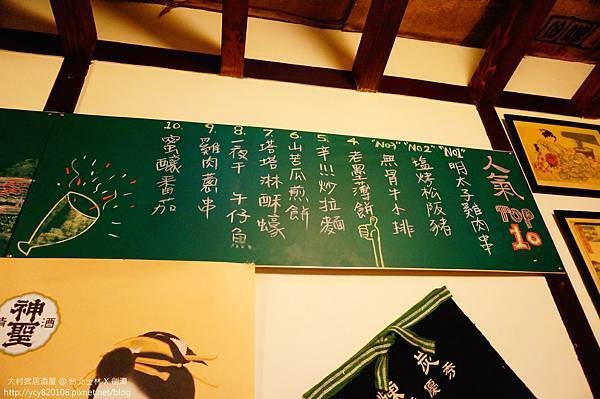 人氣 TOP 10
"NO1" 明太子雞肉串
"NO2" 塩烤松阪豬
"NO3" 無骨牛小排
4. 若墨薄餅
5. 辛!!!炒拉麵
6. 山苦瓜煎餅
7. 塔塔淋酥蠔
8. 一夜干 午仔魚
9. 雞肉蔥串
10. 蜜釀番茄
神聖
清酒
炭
慶秀
大村武居酒屋 @ 台北士林 X 劍潭
http://ycy820108.pixnet.net/blog